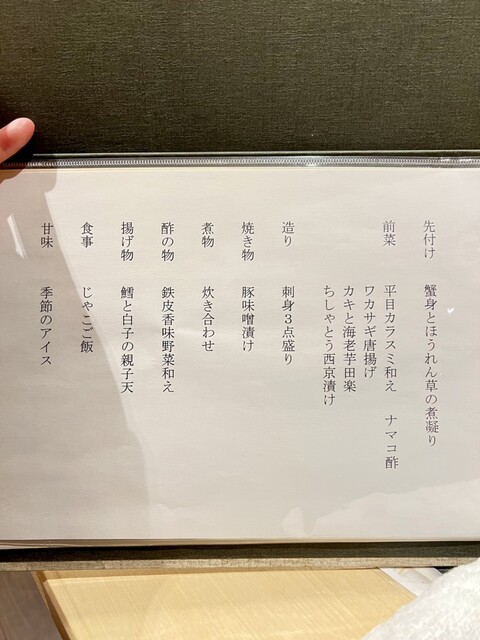 先付け　蟹身とほうれん草の煮凝り
前菜　平目カラスミ和え　ナマコ酢
ワカサギ唐揚げ
カキと海老芋田楽
ちしゃとう西京漬け
造り　刺身３点盛り
焼き物　豚味噌漬け
煮物　炊き合わせ
酢の物　鉄皮香味野菜和え
揚げ物　鱈と白子の親子天
食事　じゃこご飯
甘味　季節のアイス